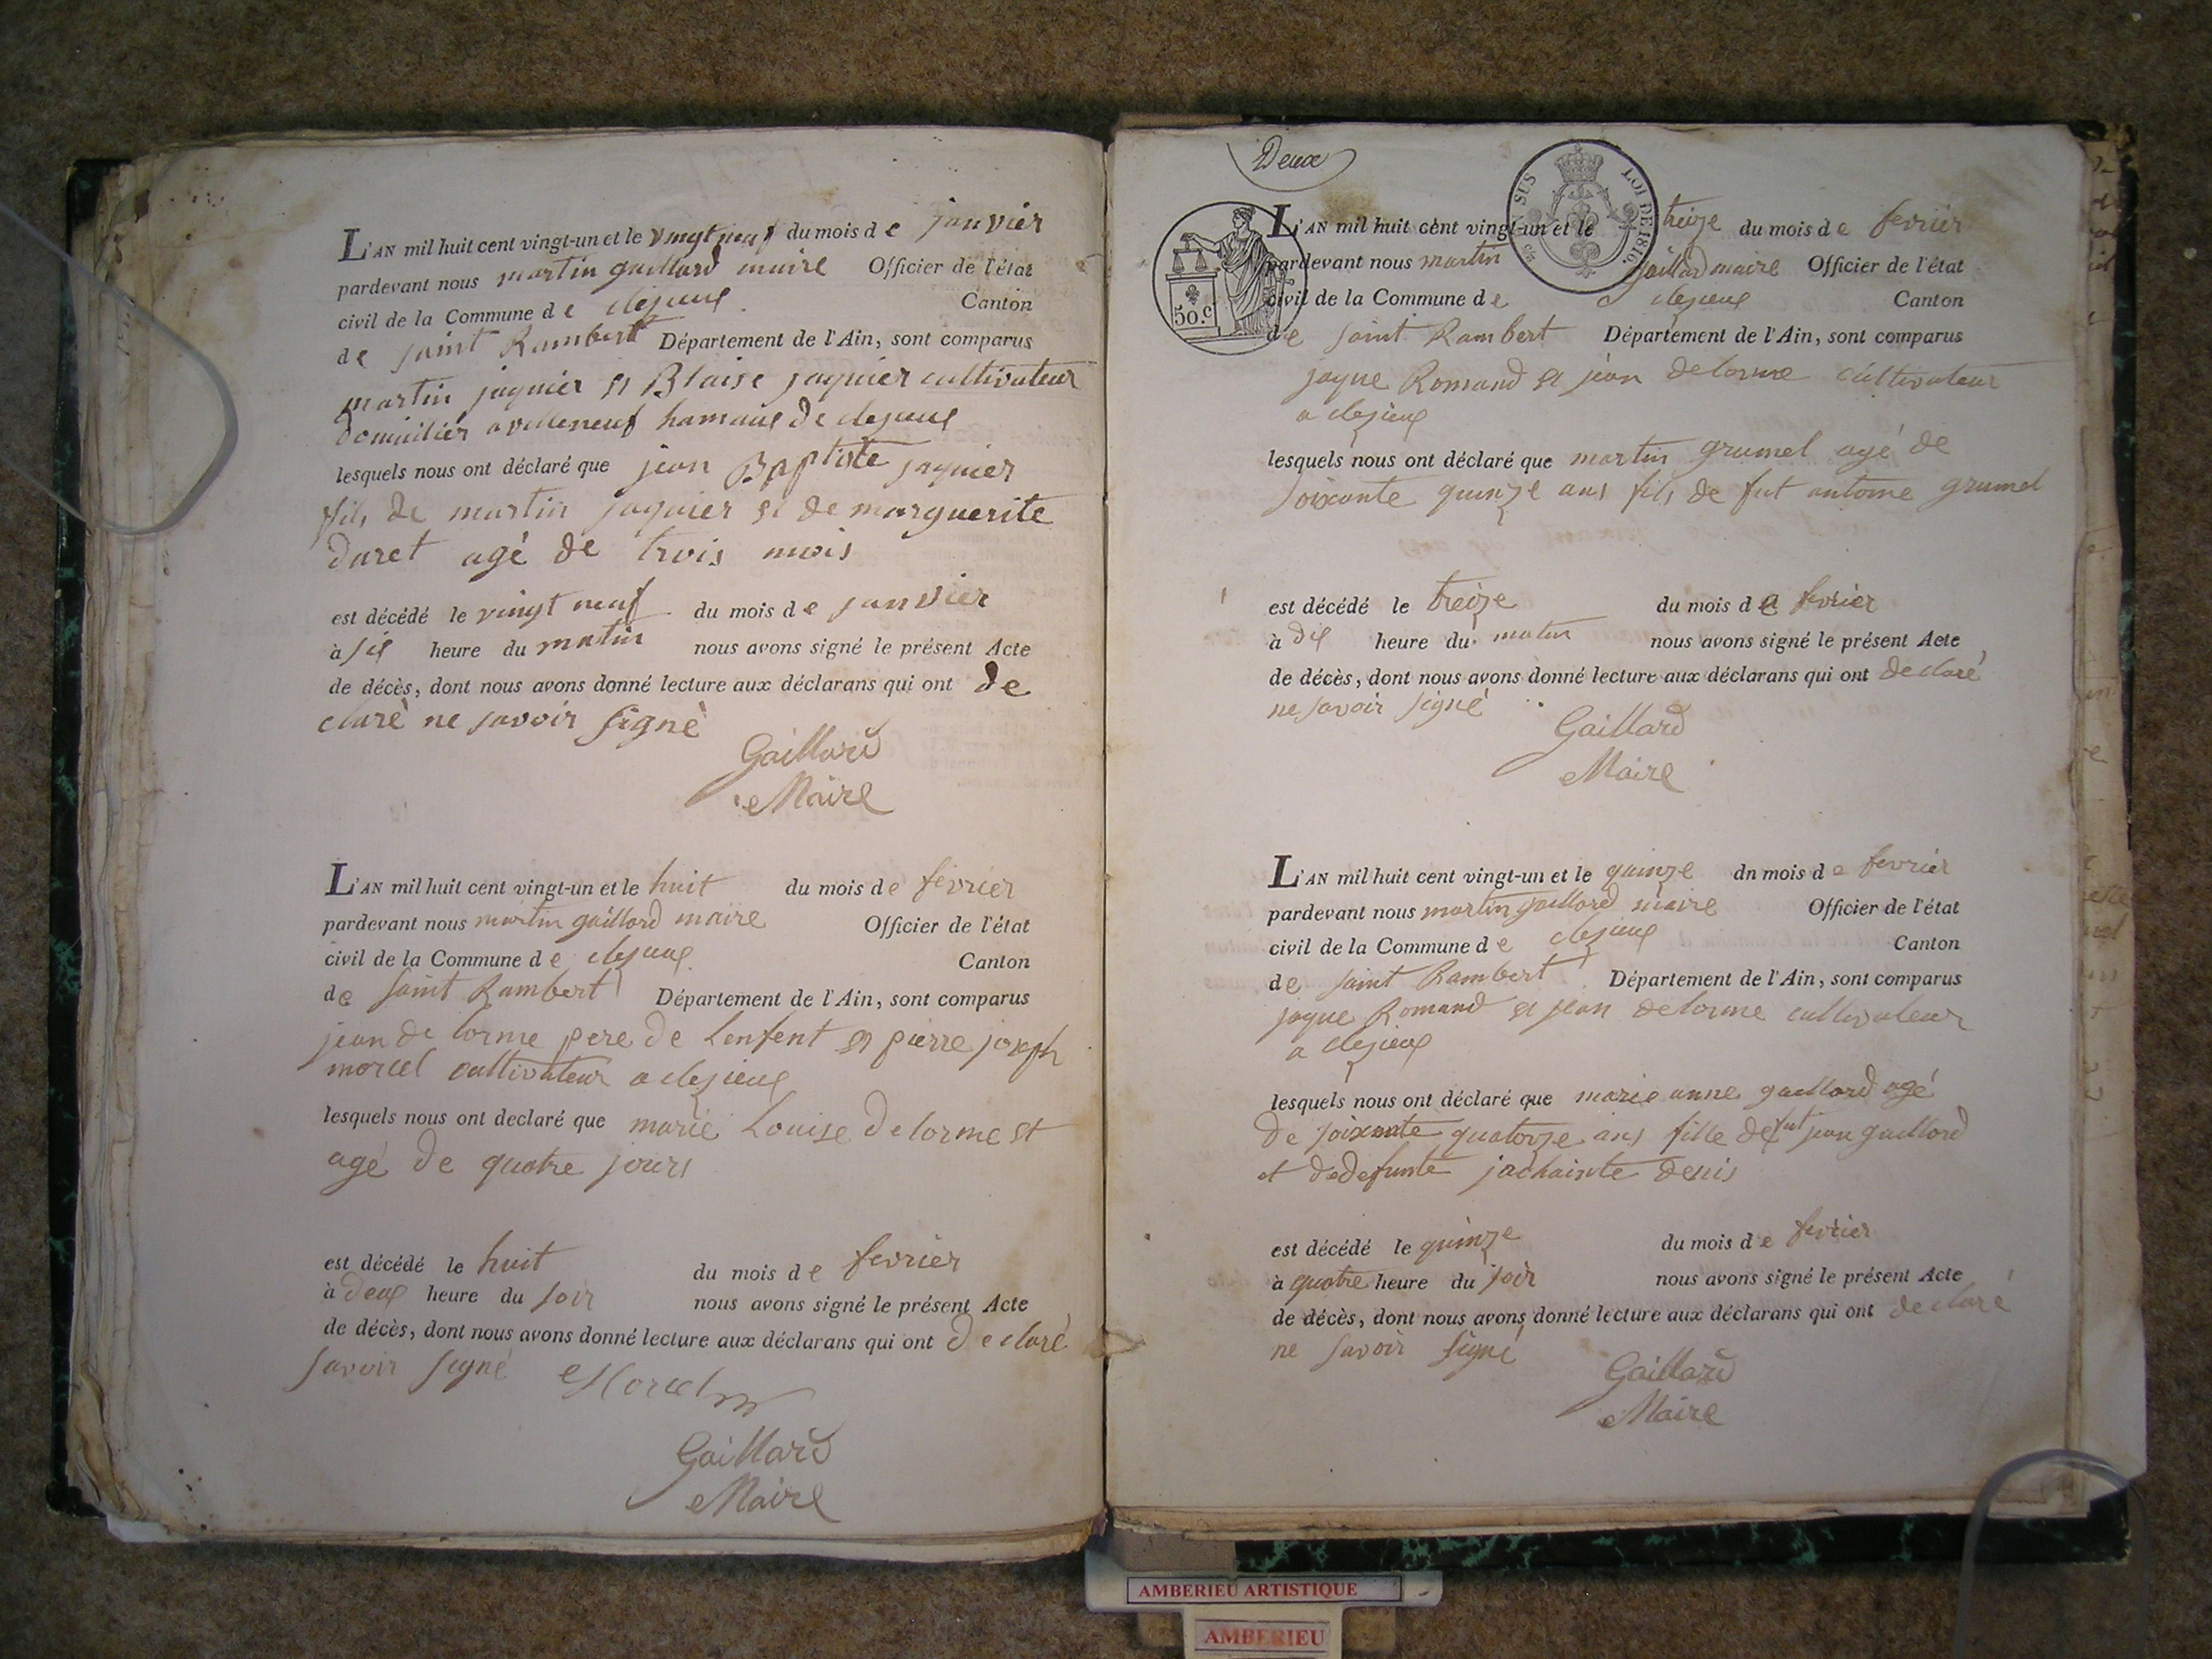 L'AN mil huit cent vingt-un et le vingt neuf du mois de janvier
pardevant nous martin gaillard maire Officier de l'état
civil de la Commune de clezieux Canton
de saint Rambert Département de l'Ain, sont comparus
martin jaquier et Blaise jaquier cultivateur
domicilier a villeneuf hamaux de clezieux
lesquels nous ont déclaré que jean Baptiste jaquier
fils de martin jaquier et de marguerite
duret agé de trois mois
est décédé le vingt neuf du mois de janvier
à six heure du matin nous avons signé le présent Acte
de décès, dont nous avons donné lecture aux déclarans qui ont de
claré ne savoir signé
Gaillard
Maire
L'AN mil huit cent vingt-un et le huit du mois de fevrier
pardevant nous martin gaillard maire Officier de l'état
civil de la Commune de clezieux Canton
de saint Rambert Département de l'Ain, sont comparus
jean de lorme pere de lenfent et pierre joseph
morcel cultivateur a clezieux
lesquels nous ont declaré que marie Louise Delorme et
agé de quatre jours
est décédé le huit du mois de fevrier
à deux heure du soir nous avons signé le présent Acte
de décès, dont nous avons donné lecture aux déclarans qui ont declaré
savoir signé Morcel
Gaillard
Maire
Deux
SUS LOI DE 1816.
50.c
L'AN mil huit cent vingt-un et le treize du mois de fevrier
pardevant nous martin gaillard maire Officier de l'état
civil de la Commune de clezieux Canton
de saint Rambert Département de l'Ain, sont comparus
jaque Romand et jean delorme cultivateur
a clezieux
lesquels nous ont déclaré que martin grumel agé de
soixante quinze ans fils de fut antoine grumel
est décédé le treize du mois de fevrier
à dix heure du matin nous avons signé le présent Acte
de décès, dont nous avons donné lecture aux déclarans qui ont declaré
ne savoir signé
Gaillard
Maire
L'AN mil huit cent vingt-un et le quinze dn mois de fevrier
pardevant nous martin gaillard maire Officier de l'état
civil de la Commune de clezieux Canton
de saint Rambert Département de l'Ain, sont comparus
jaque Romand et jean delorme cultivateur
a clezieux
lesquels nous ont déclaré que marie anne gaillard agé
de soixante quatorze ans fille de fut jean gaillard
et dedefunte jachainte denis
est décédé le quinze du mois de fevrier
à quatre heure du soir nous avons signé le présent Acte
de décès, dont nous avons donné lecture aux déclarans qui ont declaré
ne savoir signé
Gaillard
Maire
AMBERIEU ARTISTIQUE
AMBERIEU